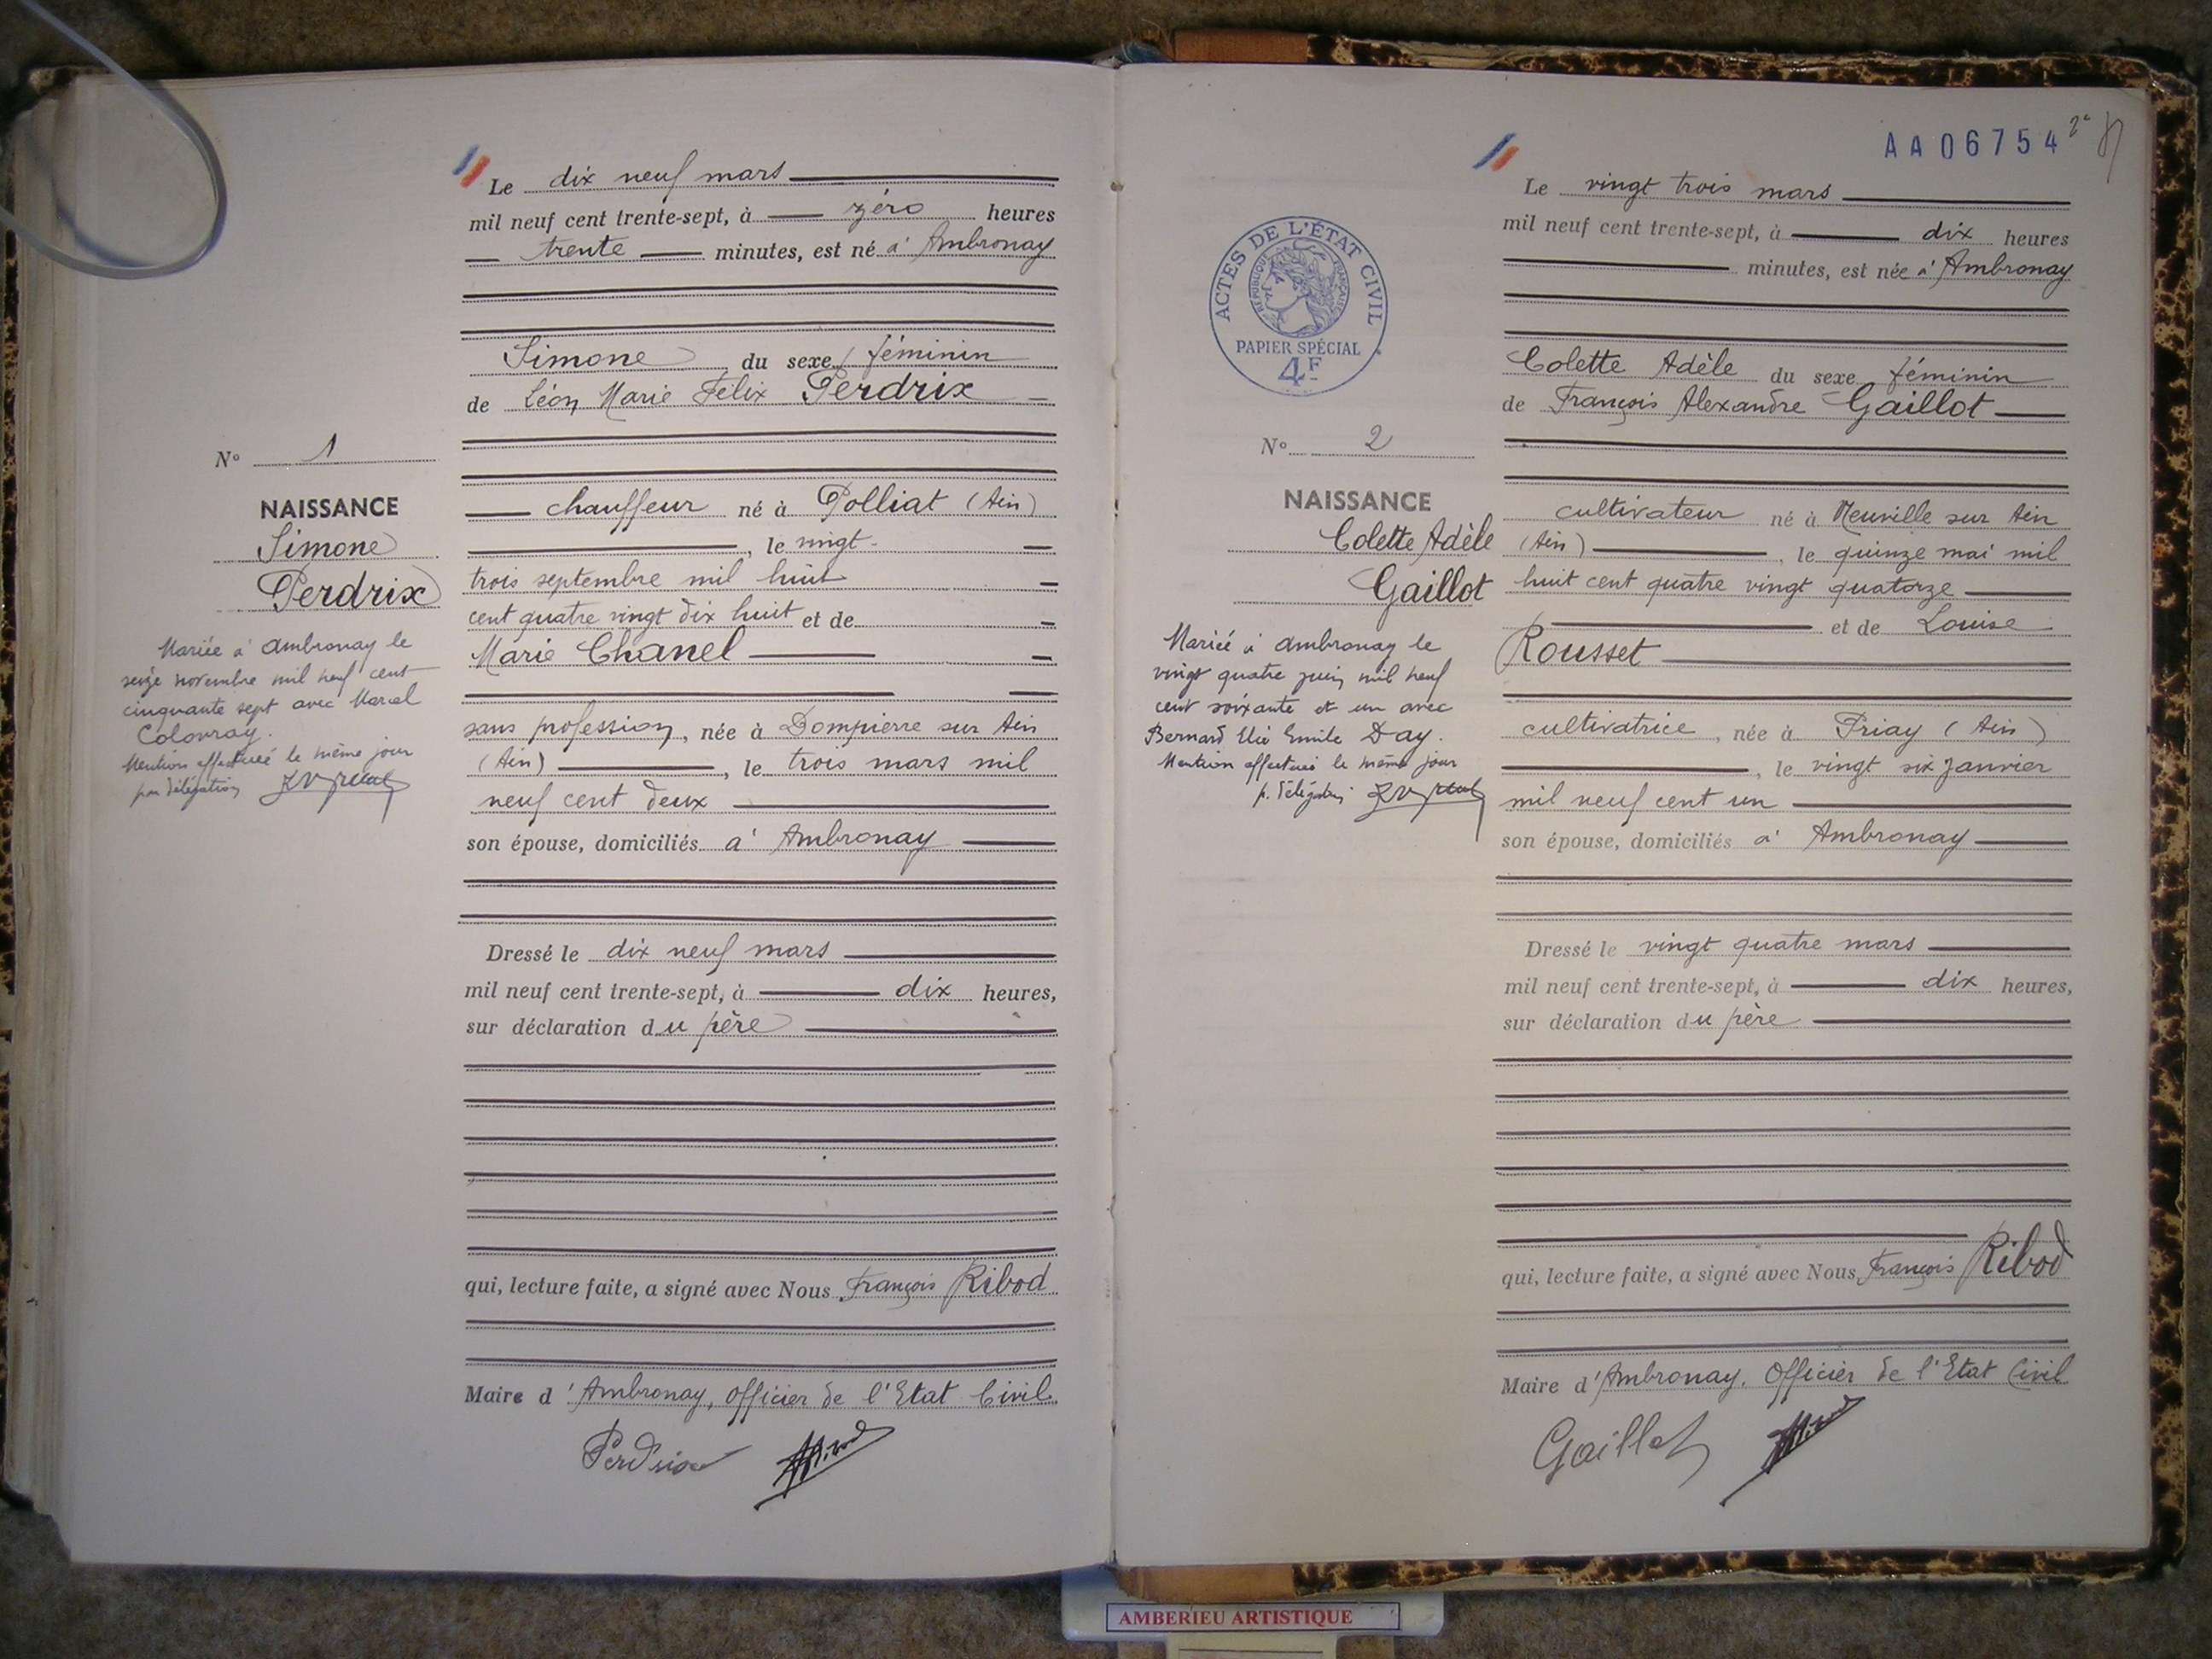 Le dix neuf mars
mil neuf cent trente-sept, à zéro heures
trente minutes, est né à Ambronay
Simone du sexe féminin
de Léon Marie Félix Perdrix
N° 1
NAISSANCE
Simone
Perdrix
Mariée à Ambronay le
seize novembre mil neuf cent
cinquante sept avec Marcel
Colovray.
Mention effectuée le même jour
par délégation
chauffeur né à Polliat (Ain)
, le vingt-
trois septembre mil huit
cent quatre vingt dix huit et de
Marie Chanel
sans profession, née à Dompierre sur Ain
(Ain) , le trois mars mil
neuf cent deux
son épouse, domiciliés à Ambronay
Dressé le dix neuf mars
mil neuf cent trente-sept, à dix heures,
sur déclaration du père
qui, lecture faite, a signé avec Nous François Ribod
Maire d'Ambronay, Officier de l'Etat Civil
Perdrix
AA06754
2e
ACTES DE L'ÉTAT CIVIL
RÉPUBLIQUE FRANÇAISE
PAPIER SPÉCIAL
4F
Le vingt trois mars
mil neuf cent trente-sept, à dix heures
minutes, est née à Ambronay
Colette Adèle du sexe féminin
de François Alexandre Gaillot
N° 2
NAISSANCE
Colette Adèle
Gaillot
Mariée à Ambronay le
vingt quatre juin mil neuf
cent soixante et un avec
Bernard Elie Emile Day.
Mention effectuée le même jour
p. délégation
cultivateur né à Neuville sur Ain
(Ain) , le quinze mai mil
huit cent quatre vingt quatorze
et de Louise
Rousset
cultivatrice, née à Priay (Ain)
, le vingt six janvier
mil neuf cent un
son épouse, domiciliés à Ambronay
Dressé le vingt quatre mars
mil neuf cent trente-sept, à dix heures,
sur déclaration du père
qui, lecture faite, a signé avec Nous, François Ribod
Maire d'Ambronay. Officier de l'Etat Civil
Gaillot
AMBERIEU ARTISTIQUE